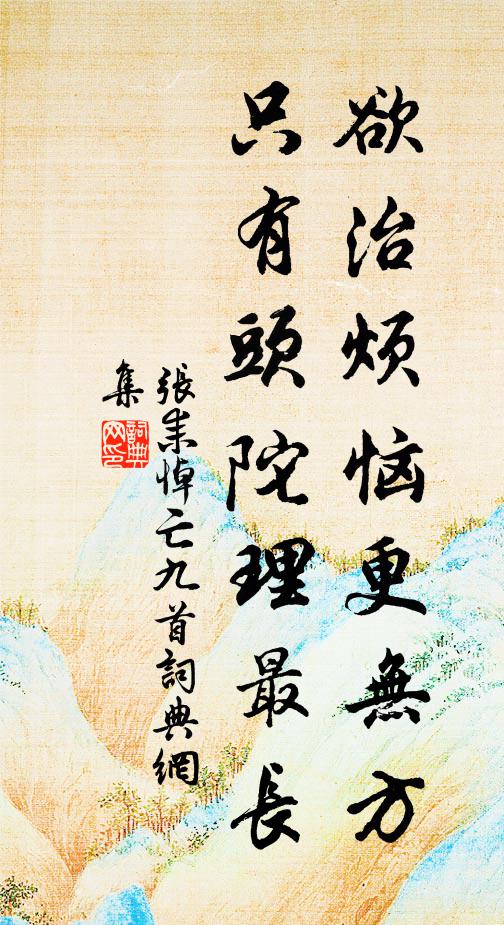 欲治煩恼更無方
只有頭陀理最長
張耒悼亡九首詞典網
集
詞典
网印